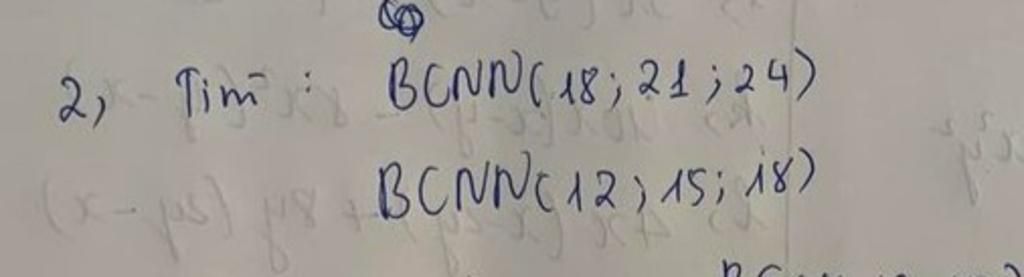 2, Tìm : BCNN(18; 21; 24)
BCNN(12; 15; 18)